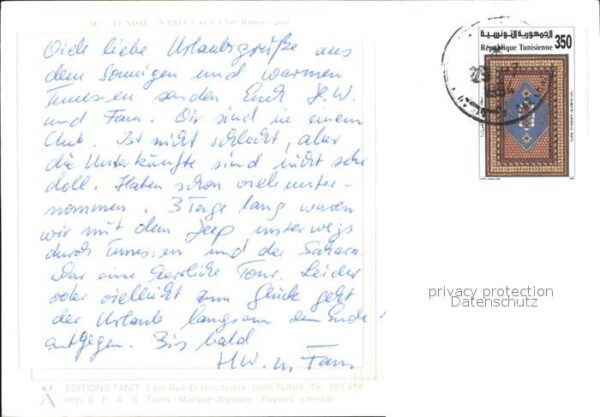 TUNISIE - NABEUL
Viele liebe Urlaubsgrüße aus
dem sonnigen und warmen
Tunesien senden Euch H.W.
und Fam. Wir sind in einem
Club. Ist nicht schlecht, aber
die Unterkünfte sind nicht sehr
doll. Haben schon viel unter-
nommen. 3 Tage lang waren
wir mit dem Jeep unterwegs
durch Tunesien und der Sahara.
War eine herrliche Tour. Leider
oder vielleicht zum Glück geht
der Urlaub langsam dem Ende
entgegen. Bis bald
H.W. u. Fam
EDITIONS TANIT, 3 bis Rue El Houdaibia 1000 TUNIS Tel 255 856
Imp. S. P. A. G. Tunis "Marque déposée" Reprod. interdite
الجمهورية التونسية
République Tunisienne 350
privacy protection
Datenschutz